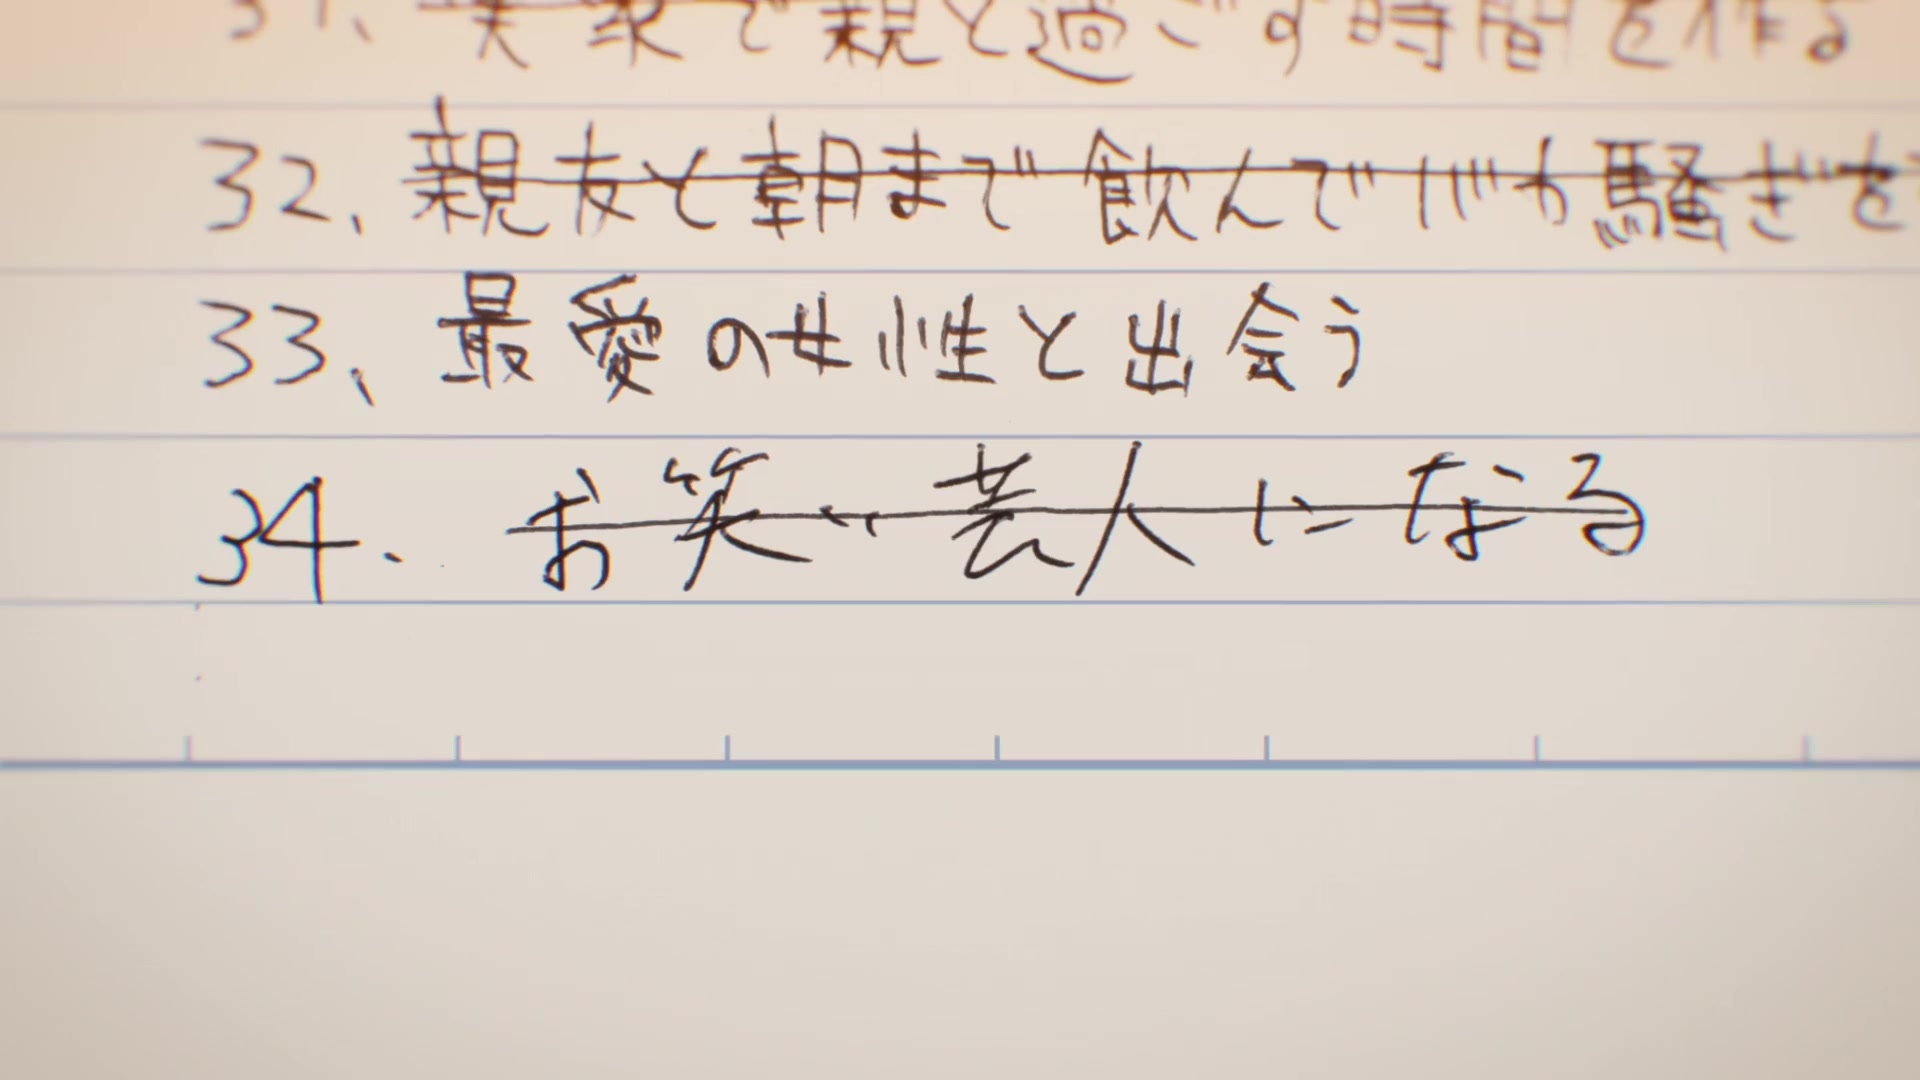 31、実家で親と過ごす時間を作る
32、親友と朝まで飲んでバカ騒ぎを
33、最愛の女性と出会う
34. お笑い芸人になる